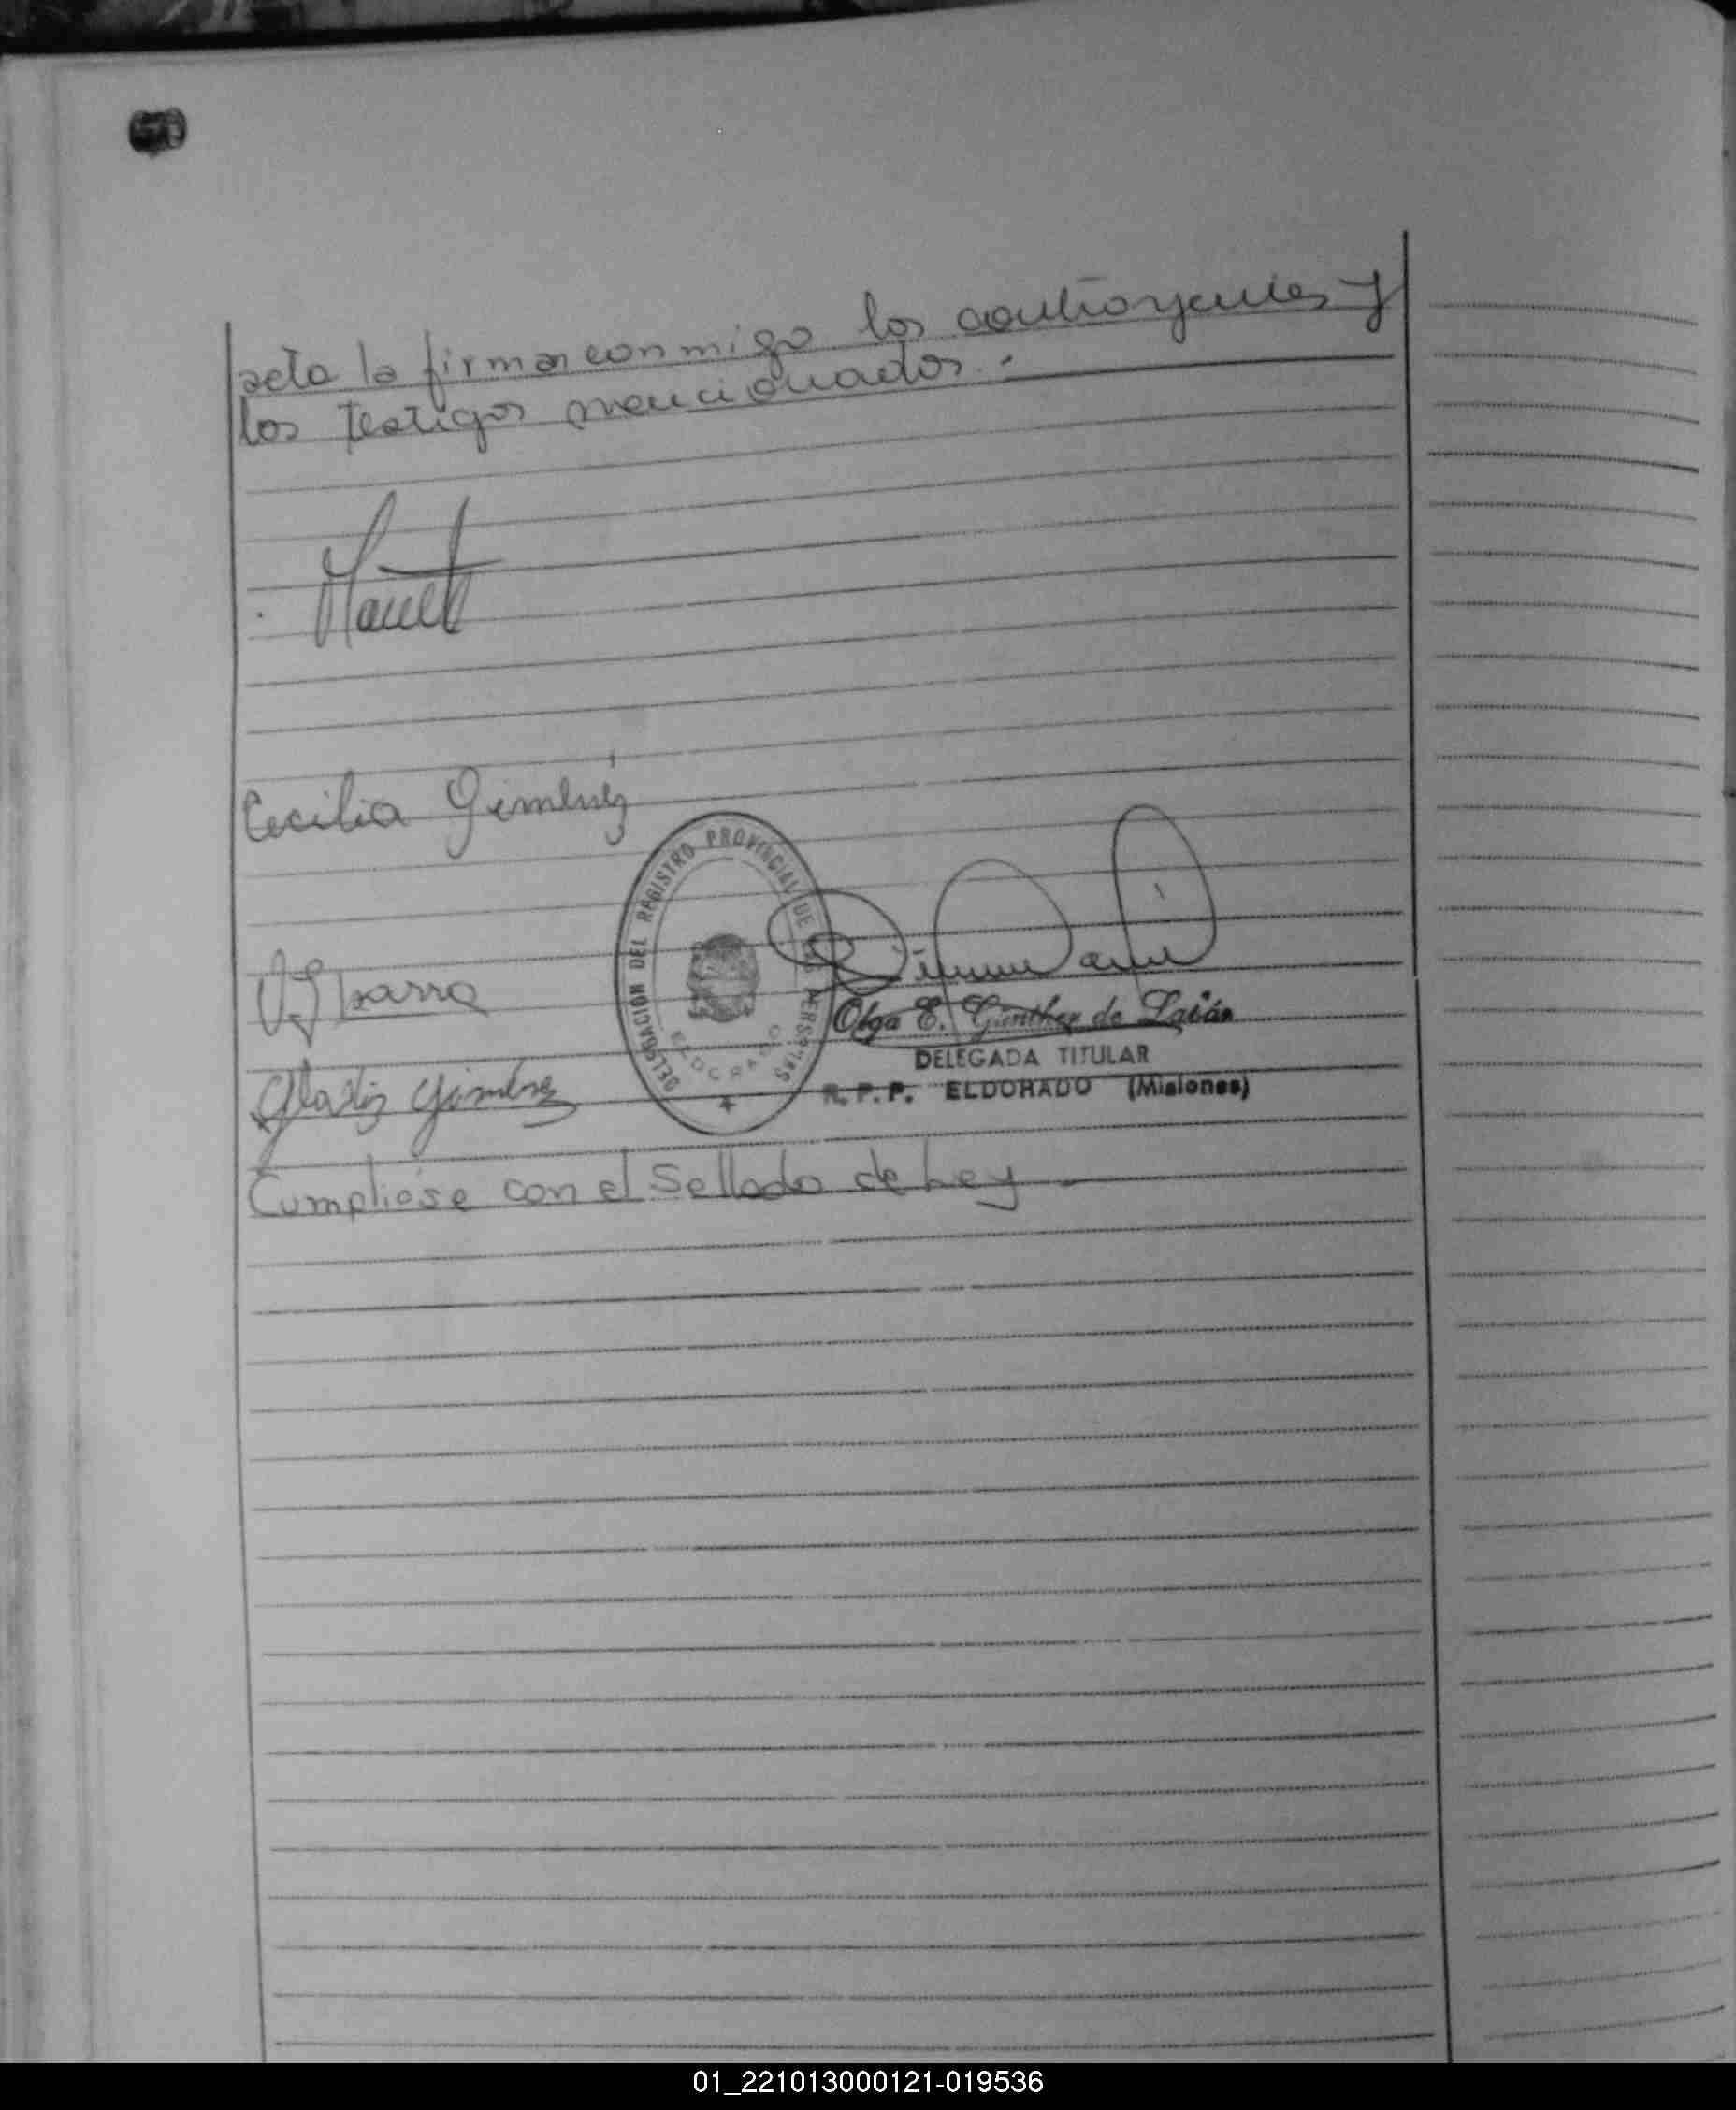 acta la firman conmigo los contrayentes y
los testigos mencionados.-
Cecilia Giménez
DELEGACION DEL REGISTRO PROVINCIAL DE LAS PERSONAS
ELDORADO
Ibarra
Olga E. Günther de
DELEGADA TITULAR
R.P.P. ELDORADO (Misiones)
Gladis Giménez
Cumpliése con el Sellado de Ley -
01_221013000121-019536